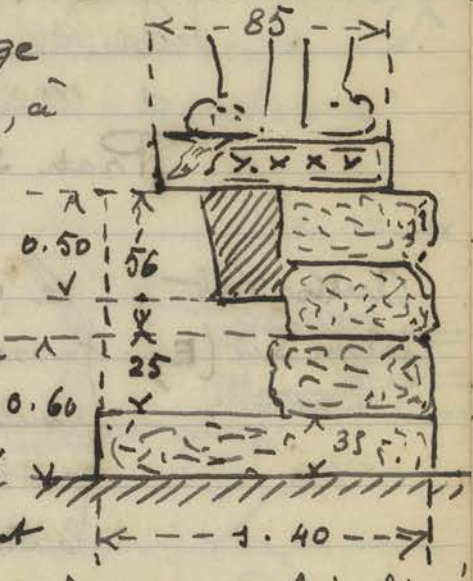 85
ge
, à
0.50
56
25
0.60
35
1.40